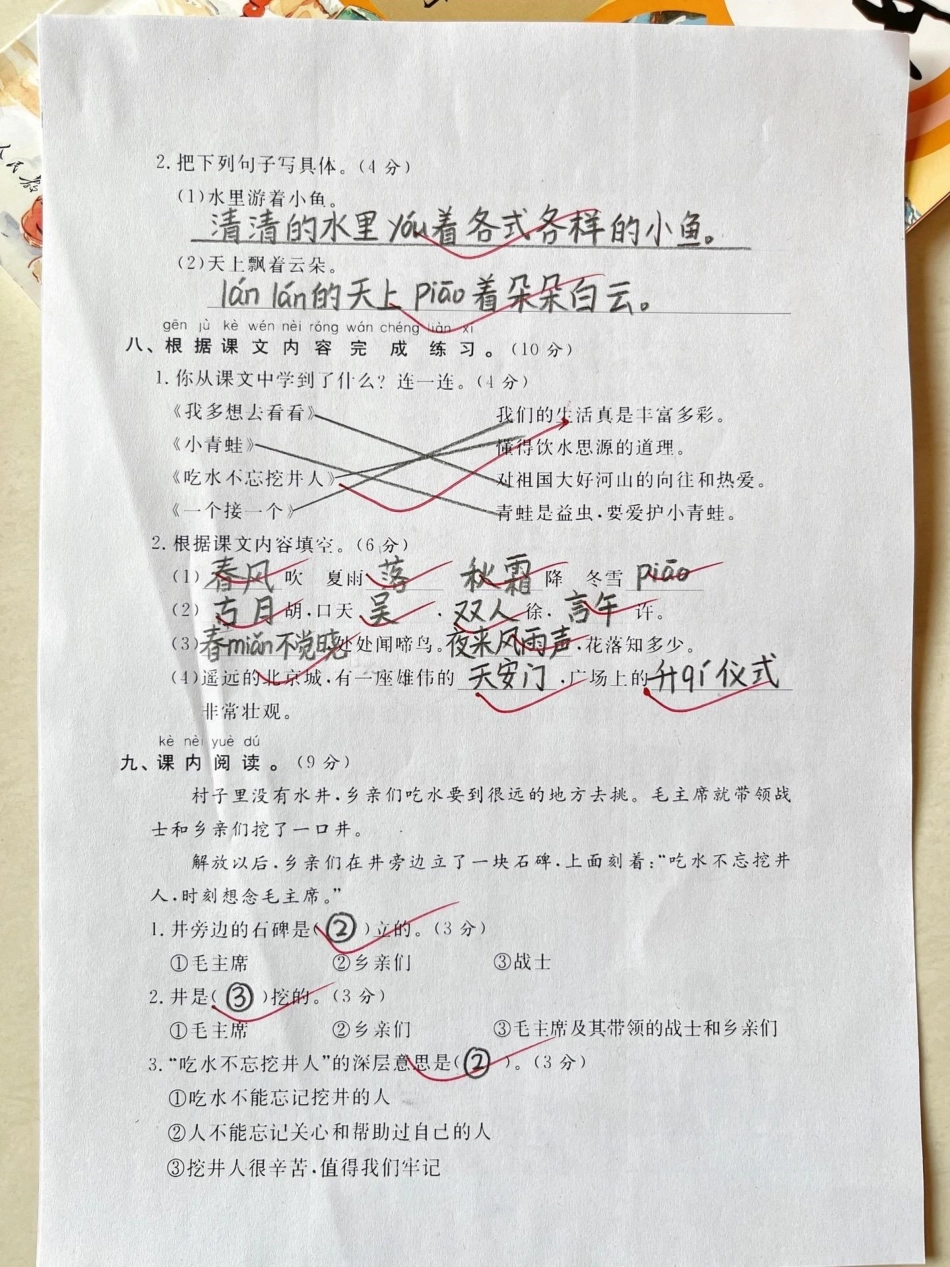 2.把下列句子写具体。(4 分)
(1)水里游着小鱼。
清清的水里yóu着各式各样的小鱼。
(2)天上飘着云朵。
lán lán的天上 piāo着朵朵白云。
gēn jù kè wén nèi róng wán chéng liàn xí
八、根据课文内容完成练习。(10 分)
1.你从课文中学到了什么?连一连。(4 分)
《我多想去看看》 我们的生活真是丰富多彩。
《小青蛙》 懂得饮水思源的道理。
《吃水不忘挖井人》 对祖国大好河山的向往和热爱。
《一个接一个》 青蛙是益虫,要爱护小青蛙。
2.根据课文内容填空。(6 分)
(1) 春风 吹 夏雨 落 秋霜 降 冬雪 piāo
(2) 古月 胡,口天 吴 ,双人 徐,言午 许。
(3)春mián不觉晓,处处闻啼鸟。夜来风雨声,花落知多少。
(4)遥远的北京城,有一座雄伟的 天安门 ,广场上的 升qí仪式
非常壮观。
kè nèi yuè dú
九、课内阅读。(9 分)
村子里没有水井,乡亲们吃水要到很远的地方去挑。毛主席就带领战
士和乡亲们挖了一口井。
解放以后,乡亲们在井旁边立了一块石碑,上面刻着:“吃水不忘挖井
人,时刻想念毛主席。”
1.井旁边的石碑是( ② )立的。(3 分)
①毛主席 ②乡亲们 ③战士
2.井是( ③ )挖的。(3 分)
①毛主席 ②乡亲们 ③毛主席及其带领的战士和乡亲们
3.“吃水不忘挖井人”的深层意思是( ② )。(3 分)
①吃水不能忘记挖井的人
②人不能忘记关心和帮助过自己的人
③挖井人很辛苦,值得我们牢记